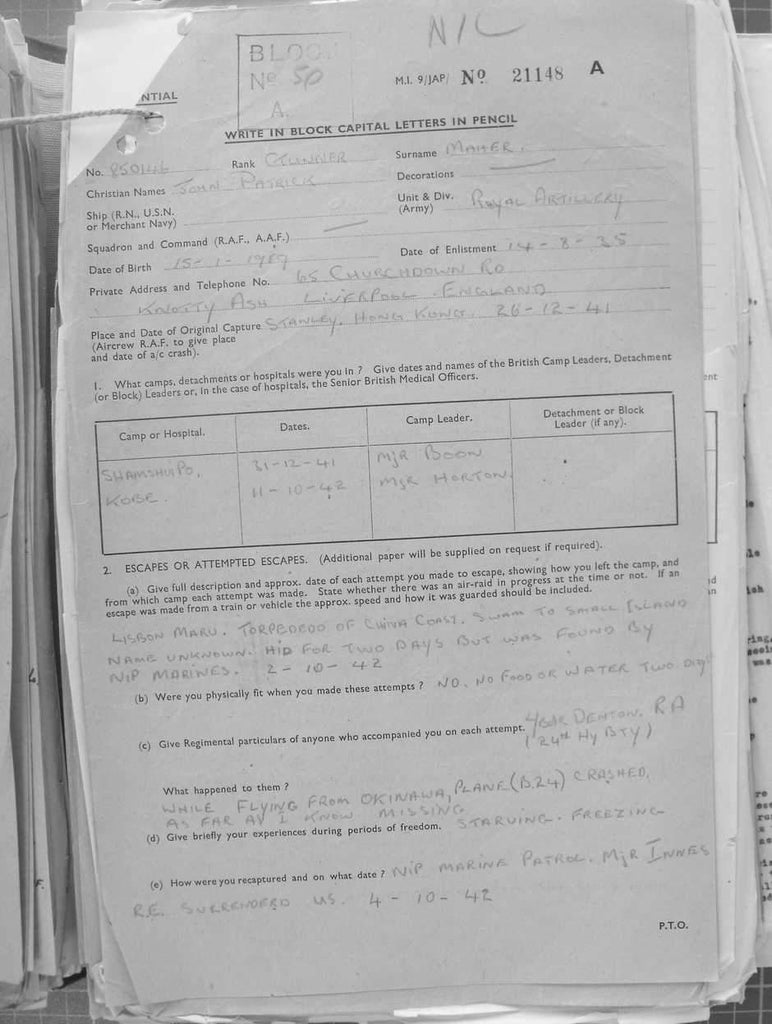 N/C
BLOC
No 50
A.
NTIAL
M.I. 9/JAP/ No 21148 A
WRITE IN BLOCK CAPITAL LETTERS IN PENCIL
No. 850146 Rank GUNNER Surname MAHER.
Christian Names JOHN PATRICK Decorations
Ship (R.N., U.S.N. or Merchant Navy) Unit & Div. (Army) ROYAL ARTILLERY
Squadron and Command (R.A.F., A.A.F.)
Date of Birth 15-1-19 Date of Enlistment 14-8-35
Private Address and Telephone No. 65 CHURCHDOWN RD
KNOTTY ASH LIVERPOOL. ENGLAND
Place and Date of Original Capture STANLEY. HONG KONG. 26-12-41
(Aircrew R.A.F. to give place
and date of a/c crash).
1. What camps, detachments or hospitals were you in ? Give dates and names of the British Camp Leaders, Detachment
(or Block) Leaders or, in the case of hospitals, the Senior British Medical Officers.
Camp or Hospital. Dates. Camp Leader. Detachment or Block Leader (if any).
SHAMSHUIPO, 31-12-41 MJR BOON
KOBE. 11-10-42 MJR HORTON
2. ESCAPES OR ATTEMPTED ESCAPES. (Additional paper will be supplied on request if required).
(a) Give full description and approx. date of each attempt you made to escape, showing how you left the camp, and
from which camp each attempt was made. State whether there was an air-raid in progress at the time or not. If an
escape was made from a train or vehicle the approx. speed and how it was guarded should be included.
LISBON MARU. TORPEDEDO OF CHINA COAST. SWAM TO SMALL ISLAND
NAME UNKNOWN. HID FOR TWO DAYS BUT WAS FOUND BY
NIP MARINES. 2-10-42
(b) Were you physically fit when you made these attempts ? NO. NO FOOD OR WATER TWO DAY
(c) Give Regimental particulars of anyone who accompanied you on each attempt. DENTON. RA
(24th Hy BTY)
What happened to them ?
WHILE FLYING FROM OKINAWA, PLANE (B.24) CRASHED,
AS FAR AS I KNOW MISSING
(d) Give briefly your experiences during periods of freedom. STARVING. FREEZING
(e) How were you recaptured and on what date ? NIP MARINE PATROL. MJR INNES
R.E. SURRENDERD US. 4-10-42
P.T.O.